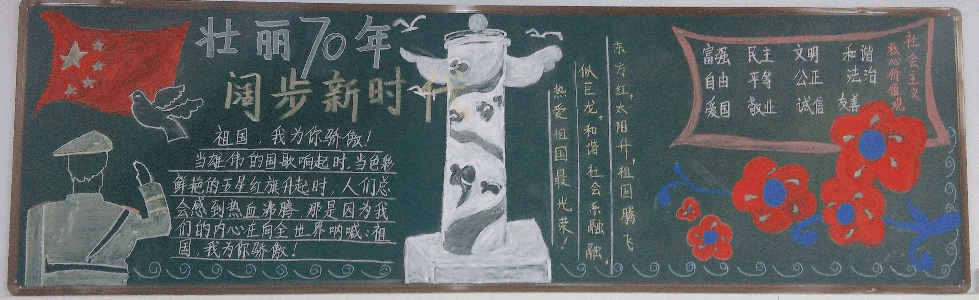 壮丽70年
阔步新时代
祖国，我为你骄傲！
当雄伟的国歌响起时，当色彩
鲜艳的五星红旗升起时，人们总
会感到热血沸腾，那是因为我
们的内心正向全世界呐喊：祖
国，我为你骄傲！
东方红，太阳升，祖国腾飞
似巨龙，和谐社会乐融融，
热爱祖国最光荣！
社会主义
核心价值观
富强 民主 文明 和谐
自由 平等 公正 法治
爱国 敬业 诚信 友善